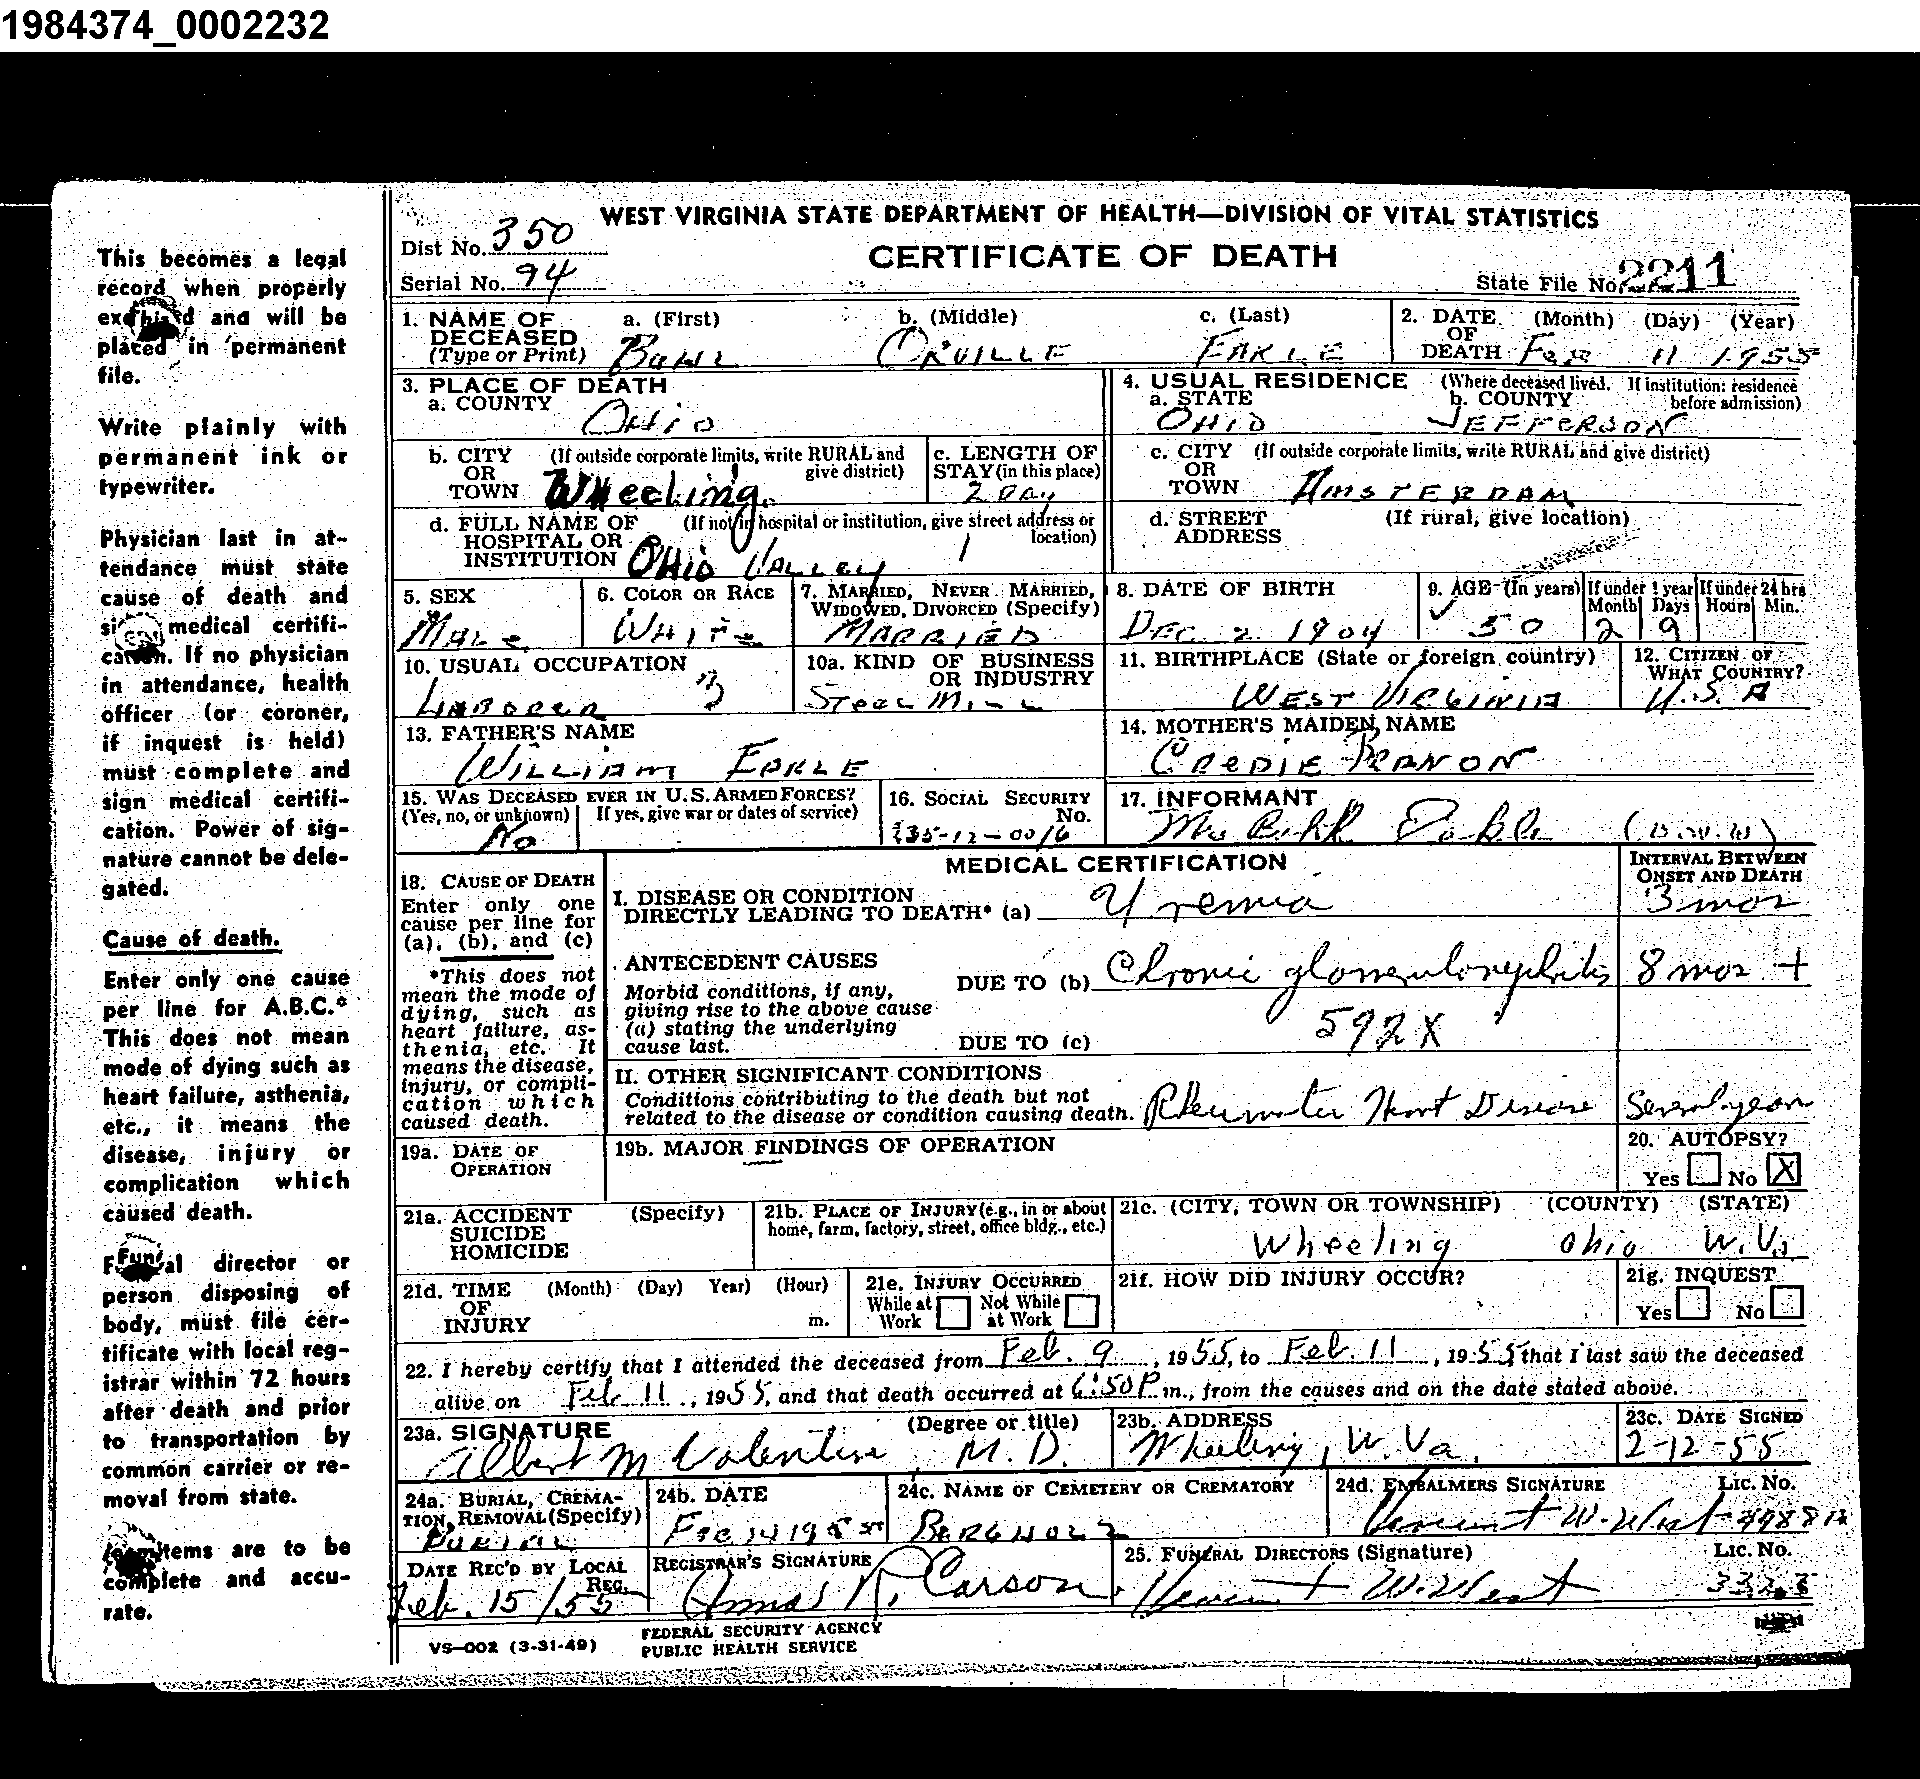 1984374_0002232
WEST VIRGINIA STATE DEPARTMENT OF HEALTH—DIVISION OF VITAL STATISTICS
CERTIFICATE OF DEATH
Dist No. 350
Serial No. 94
State File No. 2211
This becomes a legal
record when properly
and will be
placed in permanent
file.
Write plainly with
permanent ink or
typewriter.
Physician last in at-
tendance must state
cause of death and
medical certifi-
cation. If no physician
in attendance, health
officer (or coroner,
if inquest is held)
must complete and
sign medical certifi-
cation. Power of sig-
nature cannot be dele-
gated.
Cause of death.
Enter only one cause
per line for A.B.C.*
This does not mean
mode of dying such as
heart failure, asthenia,
etc., it means the
disease, injury or
complication which
caused death.
Funeral director or
person disposing of
body, must file cer-
tificate with local reg-
istrar within 72 hours
after death and prior
to transportation by
common carrier or re-
moval from state.
items are to be
complete and accu-
rate.
1. NAME OF DECEASED (Type or Print) a. (First) b. (Middle) ORVILLE c. (Last) EAKLE
2. DATE OF DEATH (Month) (Day) (Year) FEB 11 1955
3. PLACE OF DEATH
a. COUNTY OHIO
4. USUAL RESIDENCE (Where deceased lived. If institution: residence before admission)
a. STATE OHIO b. COUNTY JEFFERSON
b. CITY OR TOWN (If outside corporate limits, write RURAL and give district) Wheeling.
c. LENGTH OF STAY (in this place) 2 DAY
c. CITY OR TOWN (If outside corporate limits, write RURAL and give district) AMSTERDAM
d. FULL NAME OF HOSPITAL OR INSTITUTION (If not in hospital or institution, give street address or location) OHIO VALLEY 1
d. STREET ADDRESS (If rural, give location)
5. SEX MALE
6. COLOR OR RACE WHITE
7. MARRIED, NEVER MARRIED, WIDOWED, DIVORCED (Specify) MARRIED
8. DATE OF BIRTH DEC. 2 1904
9. AGE (In years) 50 If under 1 year Month 2 Days 9 If under 24 hrs Hours Min.
10. USUAL OCCUPATION LABORER
10a. KIND OF BUSINESS OR INDUSTRY STEEL MILL
11. BIRTHPLACE (State or foreign country) WEST VIRGINIA
12. CITIZEN OF WHAT COUNTRY? U.S.A
13. FATHER'S NAME WILLIAM EAKLE
14. MOTHER'S MAIDEN NAME
15. WAS DECEASED EVER IN U.S. ARMED FORCES? (Yes, no, or unknown) No If yes, give war or dates of service)
16. SOCIAL SECURITY No. 235-12-0016
17. INFORMANT
MEDICAL CERTIFICATION
INTERVAL BETWEEN ONSET AND DEATH
18. CAUSE OF DEATH
Enter only one
cause per line for
(a), (b), and (c)
*This does not
mean the mode of
dying, such as
heart failure, as-
thenia, etc. It
means the disease,
injury, or compli-
cation which
caused death.
I. DISEASE OR CONDITION
DIRECTLY LEADING TO DEATH* (a) Uremia 3 mos
ANTECEDENT CAUSES
Morbid conditions, if any,
giving rise to the above cause
(a) stating the underlying
cause last.
DUE TO (b) Chronic glomerulonephritis 8 mos +
592X
DUE TO (c)
II. OTHER SIGNIFICANT CONDITIONS
Conditions contributing to the death but not
related to the disease or condition causing death. Rheumatic Heart Disease Several years
19a. DATE OF OPERATION
19b. MAJOR FINDINGS OF OPERATION
20. AUTOPSY?
Yes No X
21a. ACCIDENT SUICIDE HOMICIDE (Specify)
21b. PLACE OF INJURY (e.g., in or about home, farm, factory, street, office bldg., etc.)
21c. (CITY, TOWN OR TOWNSHIP) (COUNTY) (STATE)
Wheeling Ohio W. Va
21d. TIME OF INJURY (Month) (Day) Year) (Hour) m.
21e. INJURY OCCURRED
While at Work Not While at Work
21f. HOW DID INJURY OCCUR?
21g. INQUEST
Yes No
22. I hereby certify that I attended the deceased from Feb. 9, 1955, to Feb. 11, 1955, that I last saw the deceased
alive on Feb 11, 1955, and that death occurred at 6:50 P m., from the causes and on the date stated above.
23a. SIGNATURE (Degree or title) Albert M Valentine, M. D.
23b. ADDRESS Wheeling, W. Va.
23c. DATE SIGNED 2-12-55
24a. BURIAL, CREMATION, REMOVAL (Specify) BURIAL
24b. DATE FEB 14 1955
24c. NAME OF CEMETERY OR CREMATORY BERGHOLZ
24d. EMBALMERS SIGNATURE LIC. NO.
DATE REC'D BY LOCAL REG. Feb. 15/55
REGISTRAR'S SIGNATURE Carson
25. FUNERAL DIRECTORS (Signature) LIC. NO.
VS-002 (3-31-49)
FEDERAL SECURITY AGENCY
PUBLIC HEALTH SERVICE